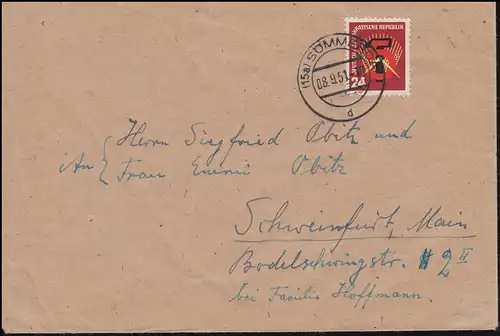 (15a) SÖMM
08.9.51
d
ATISCHE REPUBLIK
24
Herrn Siegfried Obitz und
An
Frau Obitz
Schweinfurt, Main
Bodelschwingstr. 2 II
bei Familie Hoffmann.